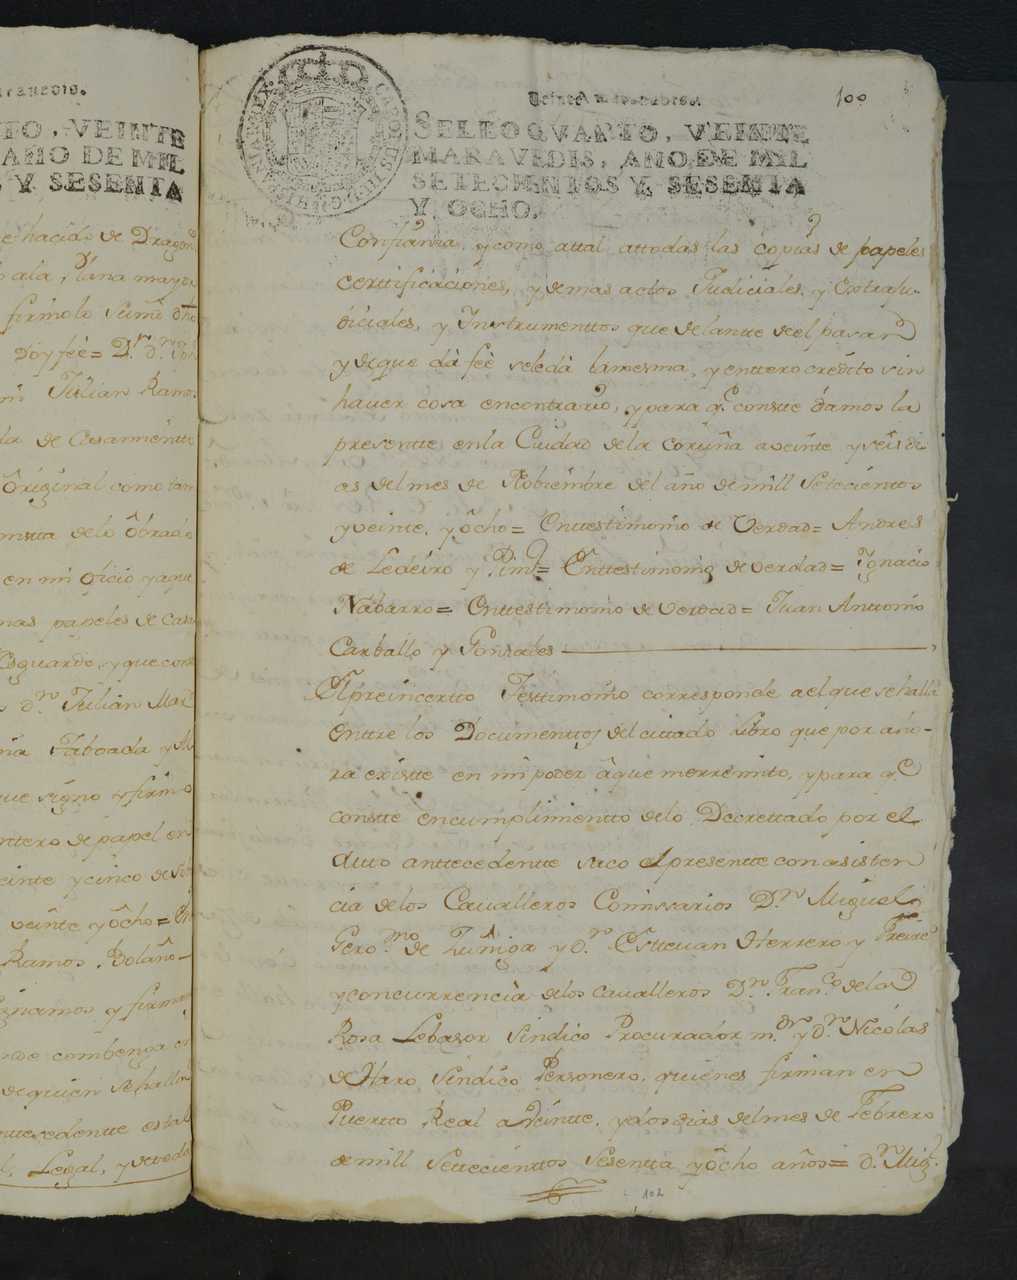 TO, VEINTE
AÑO DE MIL
Y SESENTA
de Dragon
firmolo
Doy feè = D.n
Julian Ramo
da de Casamentte
original como tam
delo obrado
en mi oficio y aque
mas papeles de Cas
Resguardo, y que con
D.n Julian
Taboada y
que signo y firmo
enttero de papel en
veinte y cinco de
veinte y ocho =
Ramos Bolaño
y firma
combenga en
de quien se hallan
anttesedentte
Legal, y de toda
Veinte maravedis.
100
SELLO QVARTO, VEINTE
MARAVEDIS, AÑO DE MIL
SETECIENTOS Y SESENTA
Y OCHO.
Confianza, y como attal attodas las copias de papeles
certtificaciones, y demas actos Judiciales, y Extraju-
diciales, y Instrumenttos que delantte de el pasan
y deque dà feè seledà lamesma, y enttero credito sin
haver cosa encontrario, y para q.e constte damos la
presentte enla Ciudad dela coruña aveinte y seis di
as del mes de Nobiembre del año de mill Setecientos
y veinte, y ocho = Enttestimonio de Verdad = Andres
de Ledeiro y Pim.l = Enttestimonio de verdad = Ignacio
Nabarro = Enttestimonio de Verdad = Juan Anttonio
Carballo y Gonsales
El preincertto Testtimonio corresponde a el que se halla
enttre los Documenttos del cittado Libro que por aho-
ra existte en mi poder à que me rremito, y para q.e
constte en cumplimientto delo Decrettado por el
Autto anttecedentte saco el presentte con asisten
cia delos Cavalleros Comissarios D.n Miguel
Gero.mo de Zuñiga y D.n Esttevan Herrero y Freire
y concurrencia delos cavalleros D.n Fran.co dela
Rosa Lebasor Sindico Procurador m.or y D.n Nicolas
de Haro, Sindico Personero, quienes firman en
Puertto Real a Veintte, y dos dias del mes de Febrero
de mill Settecienttos Sesentta y ocho años = D.n Mig.l
102